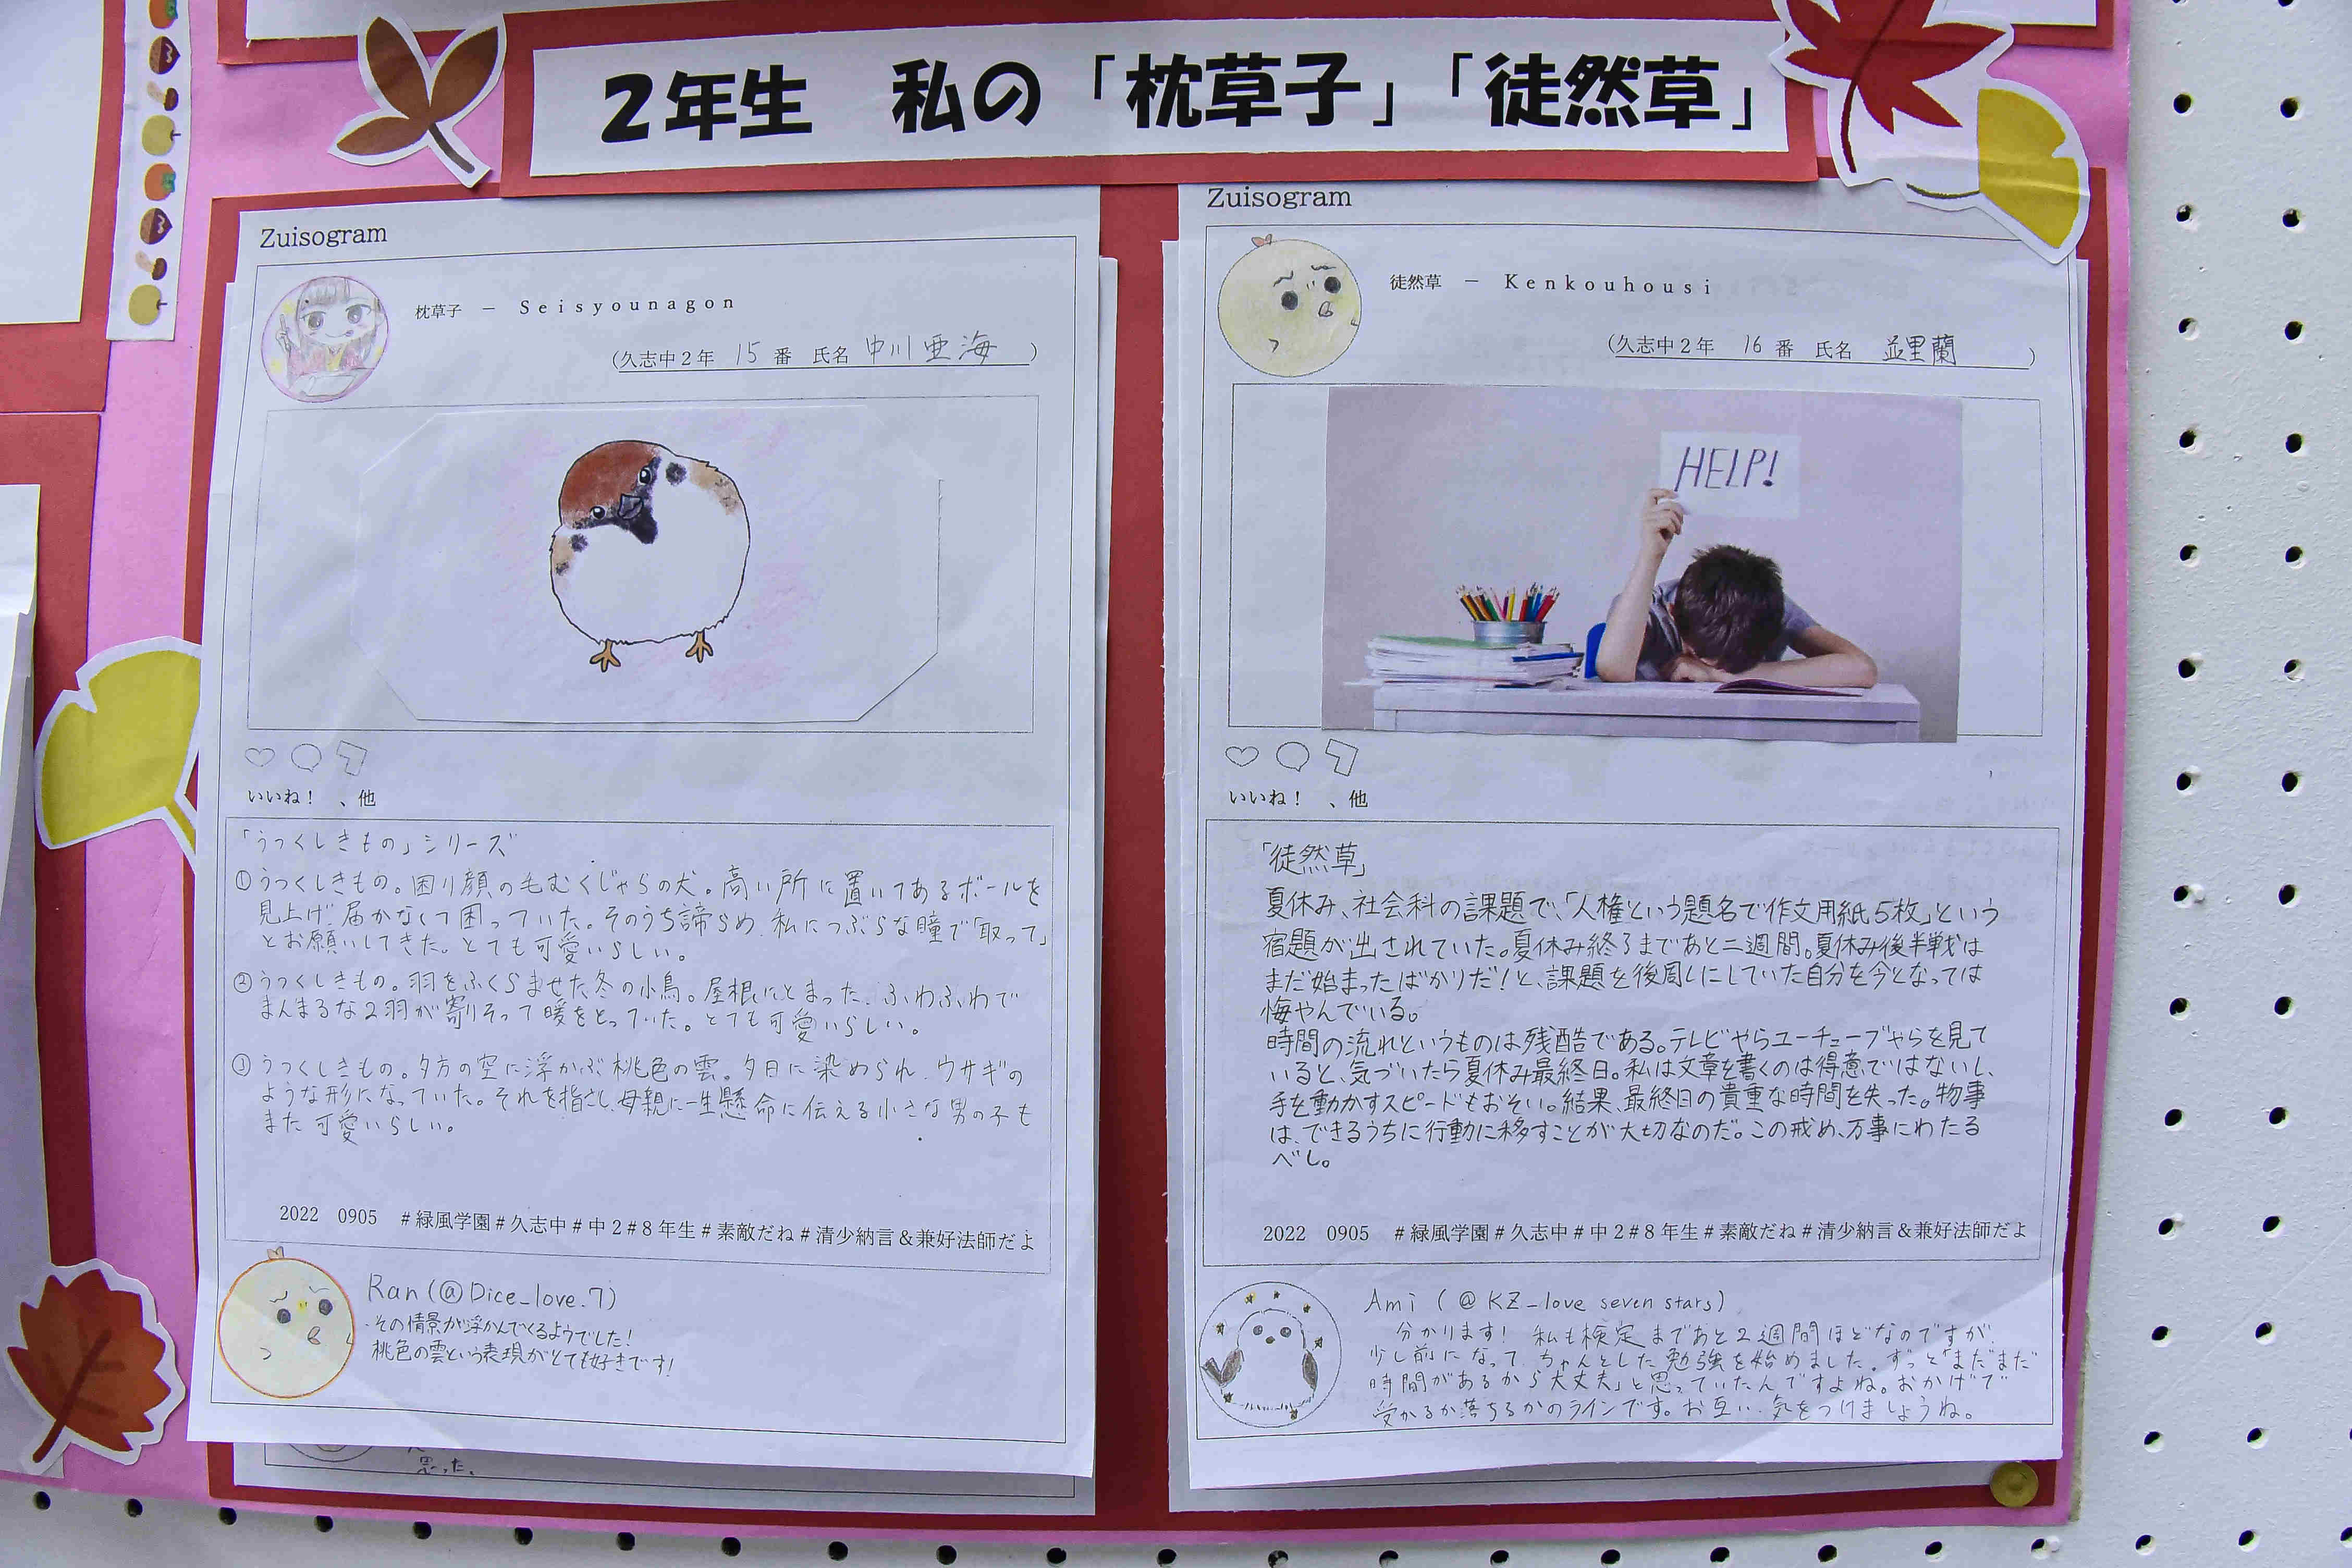 2年生　私の「枕草子」「徒然草」
Zuisogram
枕草子 － Seisyounagon
(久志中2年 15 番 氏名 中川 亜海 )
いいね！ 、他
「うつくしきもの」シリーズ
①うつくしきもの。困り顔の毛むくじゃらの犬。高い所に置いてあるボールを
見上げ、届かなくて困っていた。そのうち諦らめ、私につぶらな瞳で「取って」
とお願いしてきた。とても可愛いらしい。
②うつくしきもの。羽をふくらませた冬の小鳥。屋根にとまった、ふわふわで
まんまるな2羽が寄りそって暖をとっていた。とても可愛いらしい。
③うつくしきもの。夕方の空に浮かぶ桃色の雲。夕日に染められ、ウサギの
ような形になっていた。それを指さし、母親に一生懸命に伝える小さな男の子も
また可愛いらしい。
2022 0905 #緑風学園#久志中#中2#8年生#素敵だね#清少納言＆兼好法師だよ
Ran(@Dice_love.7)
その情景が浮かんでくるようでした!
桃色の雲という表現がとても好きです!
思った。
Zuisogram
徒然草 － Kenkouhousi
(久志中2年 16 番 氏名 並里蘭 )
HELP!
いいね！ 、他
「徒然草」
夏休み、社会科の課題で、「人権という題名で作文用紙5枚」という
宿題が出されていた。夏休み終るまであと二週間。夏休み後半戦は
まだ始まったばかりだ!と、課題を後周しにしていた自分を今となっては
悔やんでいる。
時間の流れというものは残酷である。テレビやらユーチューブやらを見て
いると、気づいたら夏休み最終日。私は文章を書くのは得意ではないし、
手を動かすスピードもおそい。結果、最終日の貴重な時間を失った。物事
は、できるうちに行動に移すことが大切なのだ。この戒め、万事にわたる
べし。
2022 0905 #緑風学園#久志中#中2#8年生#素敵だね#清少納言＆兼好法師だよ
Ami (@KZ_love seven stars)
分かります! 私も検定まであと2週間ほどなのですが、
少し前になって、ちゃんとした勉強を始めました。ずっと「まだまだ
時間があるから大丈夫」と思っていたんですよね。おかげで
受かるか落ちるかのラインです。お互い、気をつけましょうね。